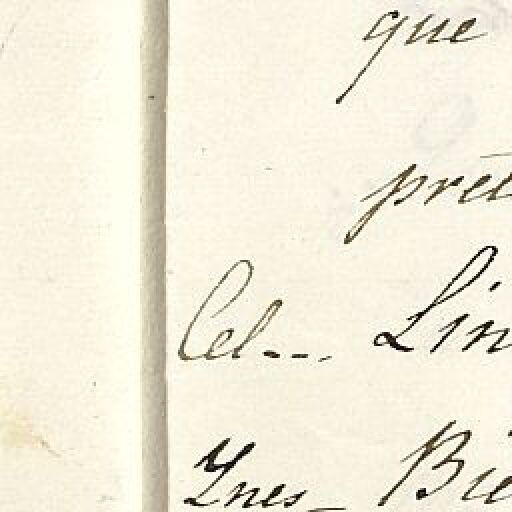 que
prét
Cel--. Lin
Ynes_ Bie